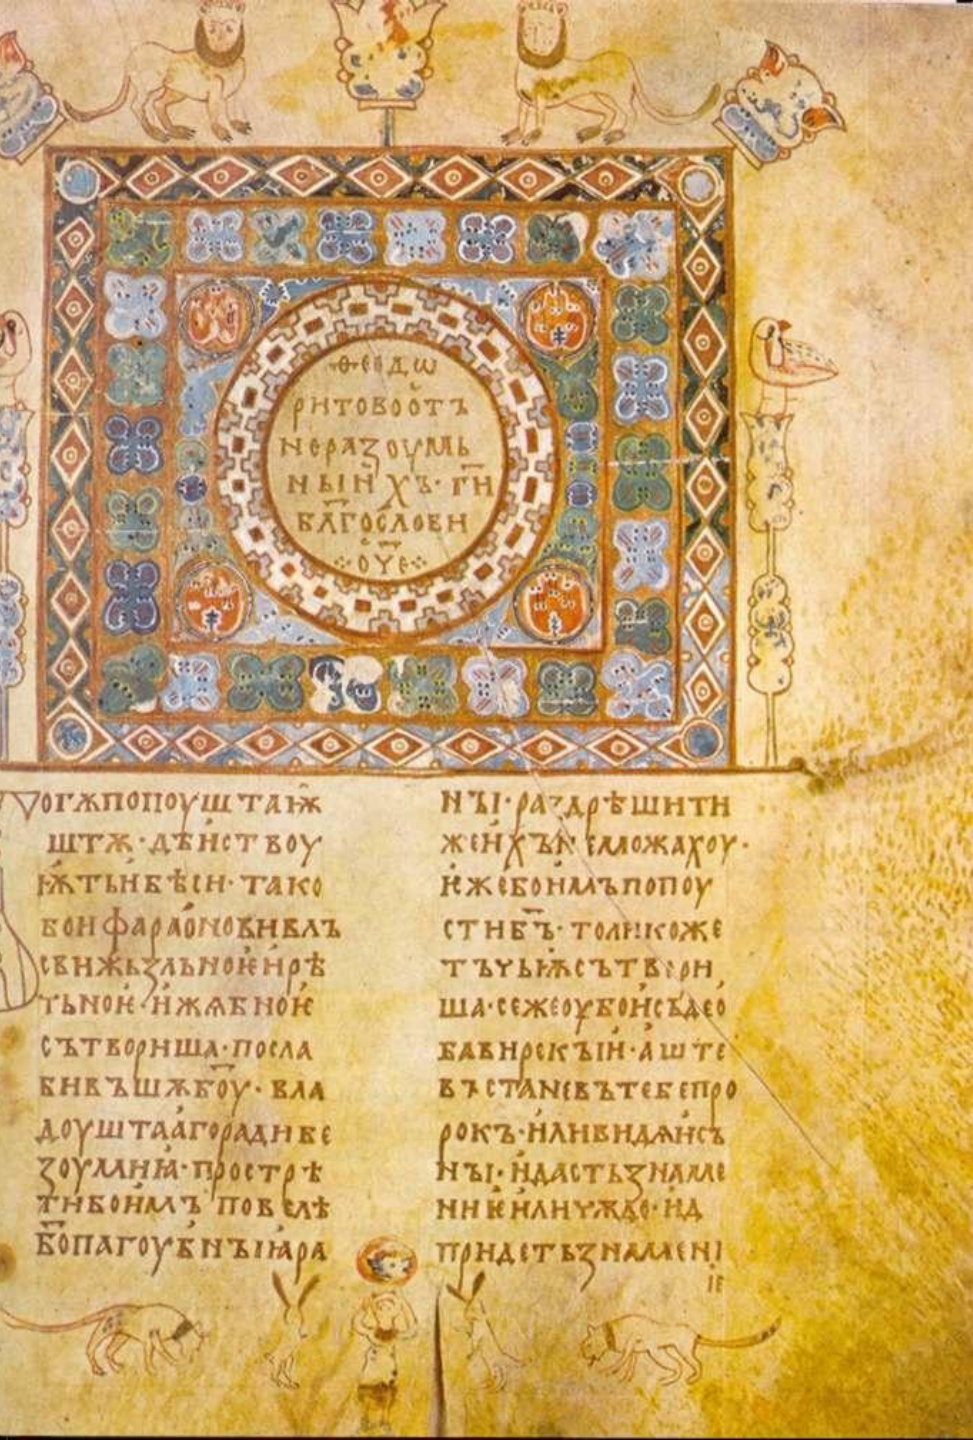 ·ѳеѡдѡ
ритово отъ
неразоумь
ныихъ· г҃и
бл҃гослови
·:оч҃е:·
богꙗ попоуштаѭ
штѫ· дѣиствоу
ѭтьи бѣси· тако
бо и фараоновивлъ
сви жьзльноѥ и рѣ
тьноѥ· и жѧбноѥ
сътвориша· посла
вивъшѫ б҃оу· вла
доушта агоради бе
зоумиꙗ· прострѣ
ти бо имъ повелѣ
б҃о пагоубныꙗ ꙗра
ны· раздрѣшити
же ихъ не можахоу·
ѥже бо имъ попоу
сти б҃ъ· толикоже
тъчьѭ сътвори
ша· се же оубо и съде о
бавирскъіи· аште
въстане въ тебе про
рокъ· или видѧи съ
ны· и дасть знаме
ниѥ или чюдо· и
придеть знамени
ѥ